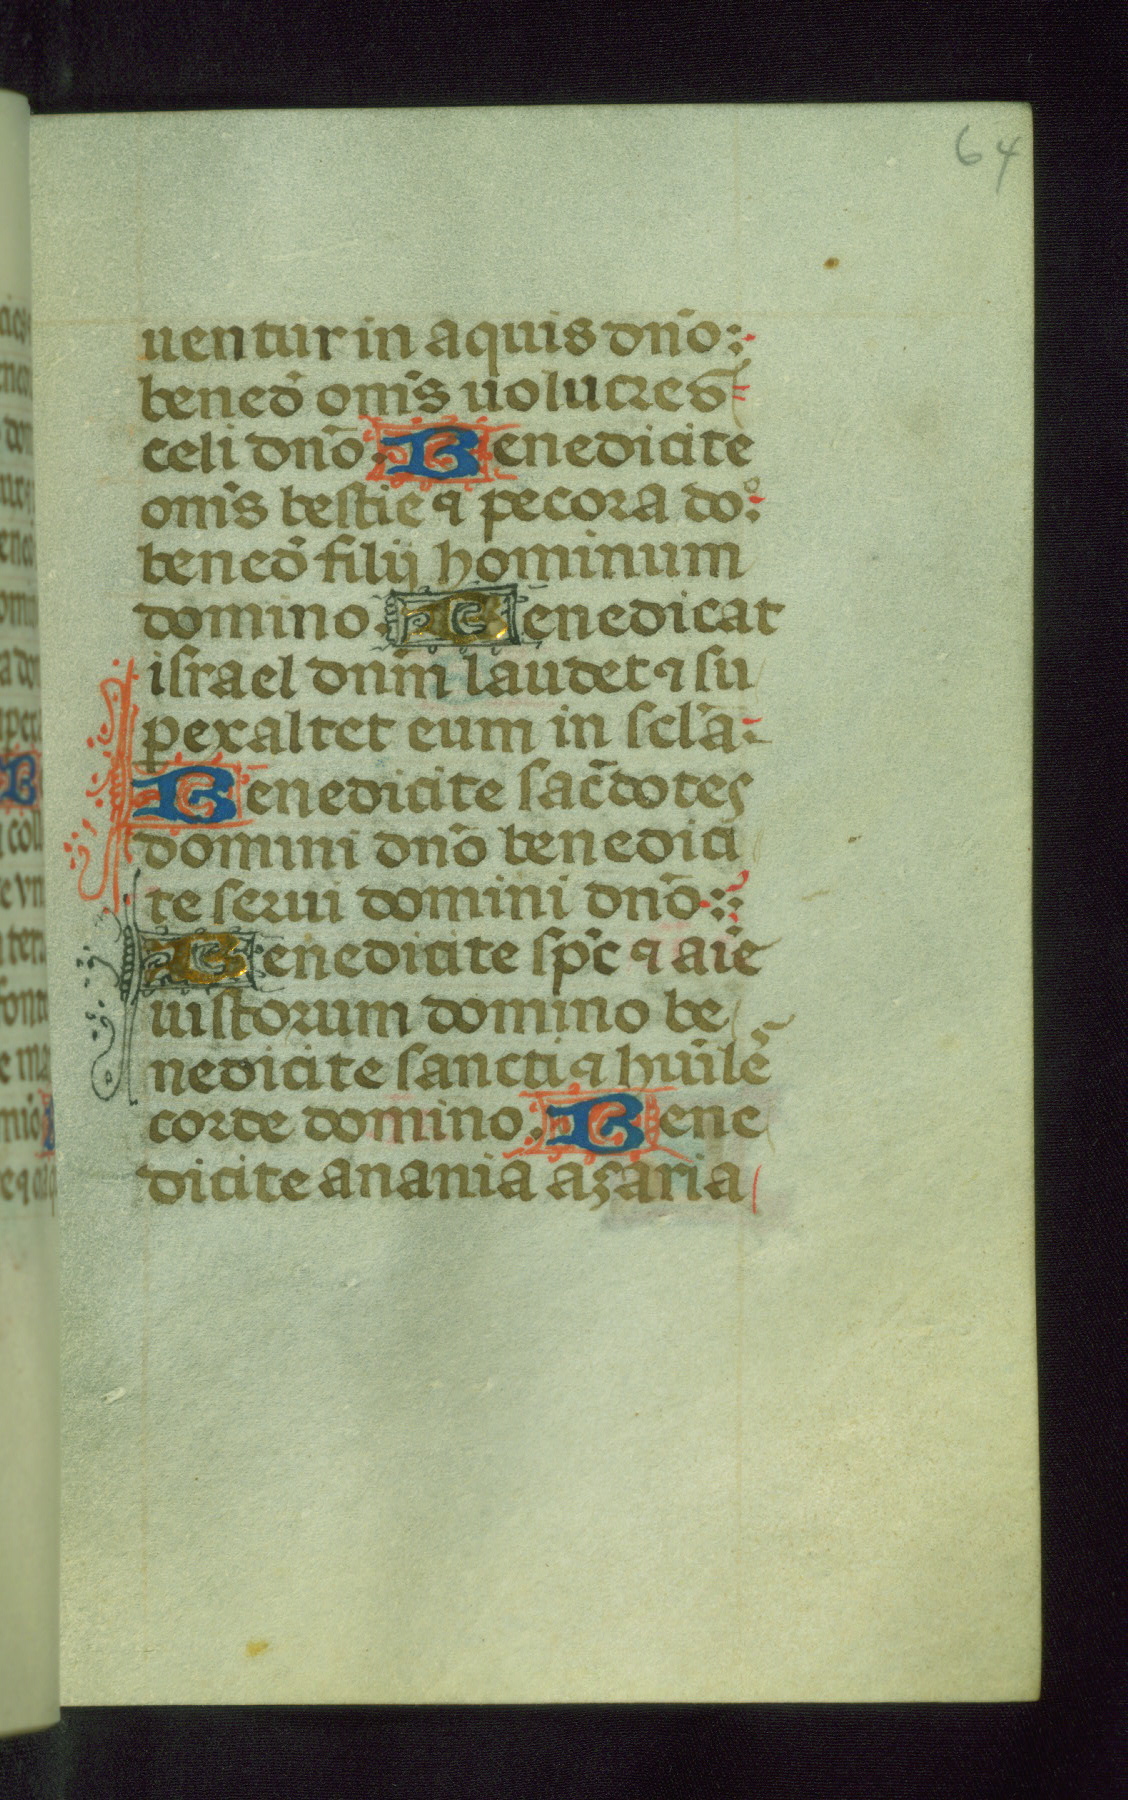 64
uentur in aquis dño:
bened̃ om̃s uolucres
celi dño. Benedicite
om̃s bestie ⁊ pecora do°:
bened̃ filij hominum
domino. Benedicat
israel dnm̃ laudet ⁊ su
perexaltet eum in scl̃a:
Benedicite sac̃dotes
domini dño benedici
te serui domini dño:
Benedicite sp̃c ⁊ aĩe
uistorum domino be
nedicite sancti ⁊ hum̃lẽ
corde domino. Bene
dicite anania azaria